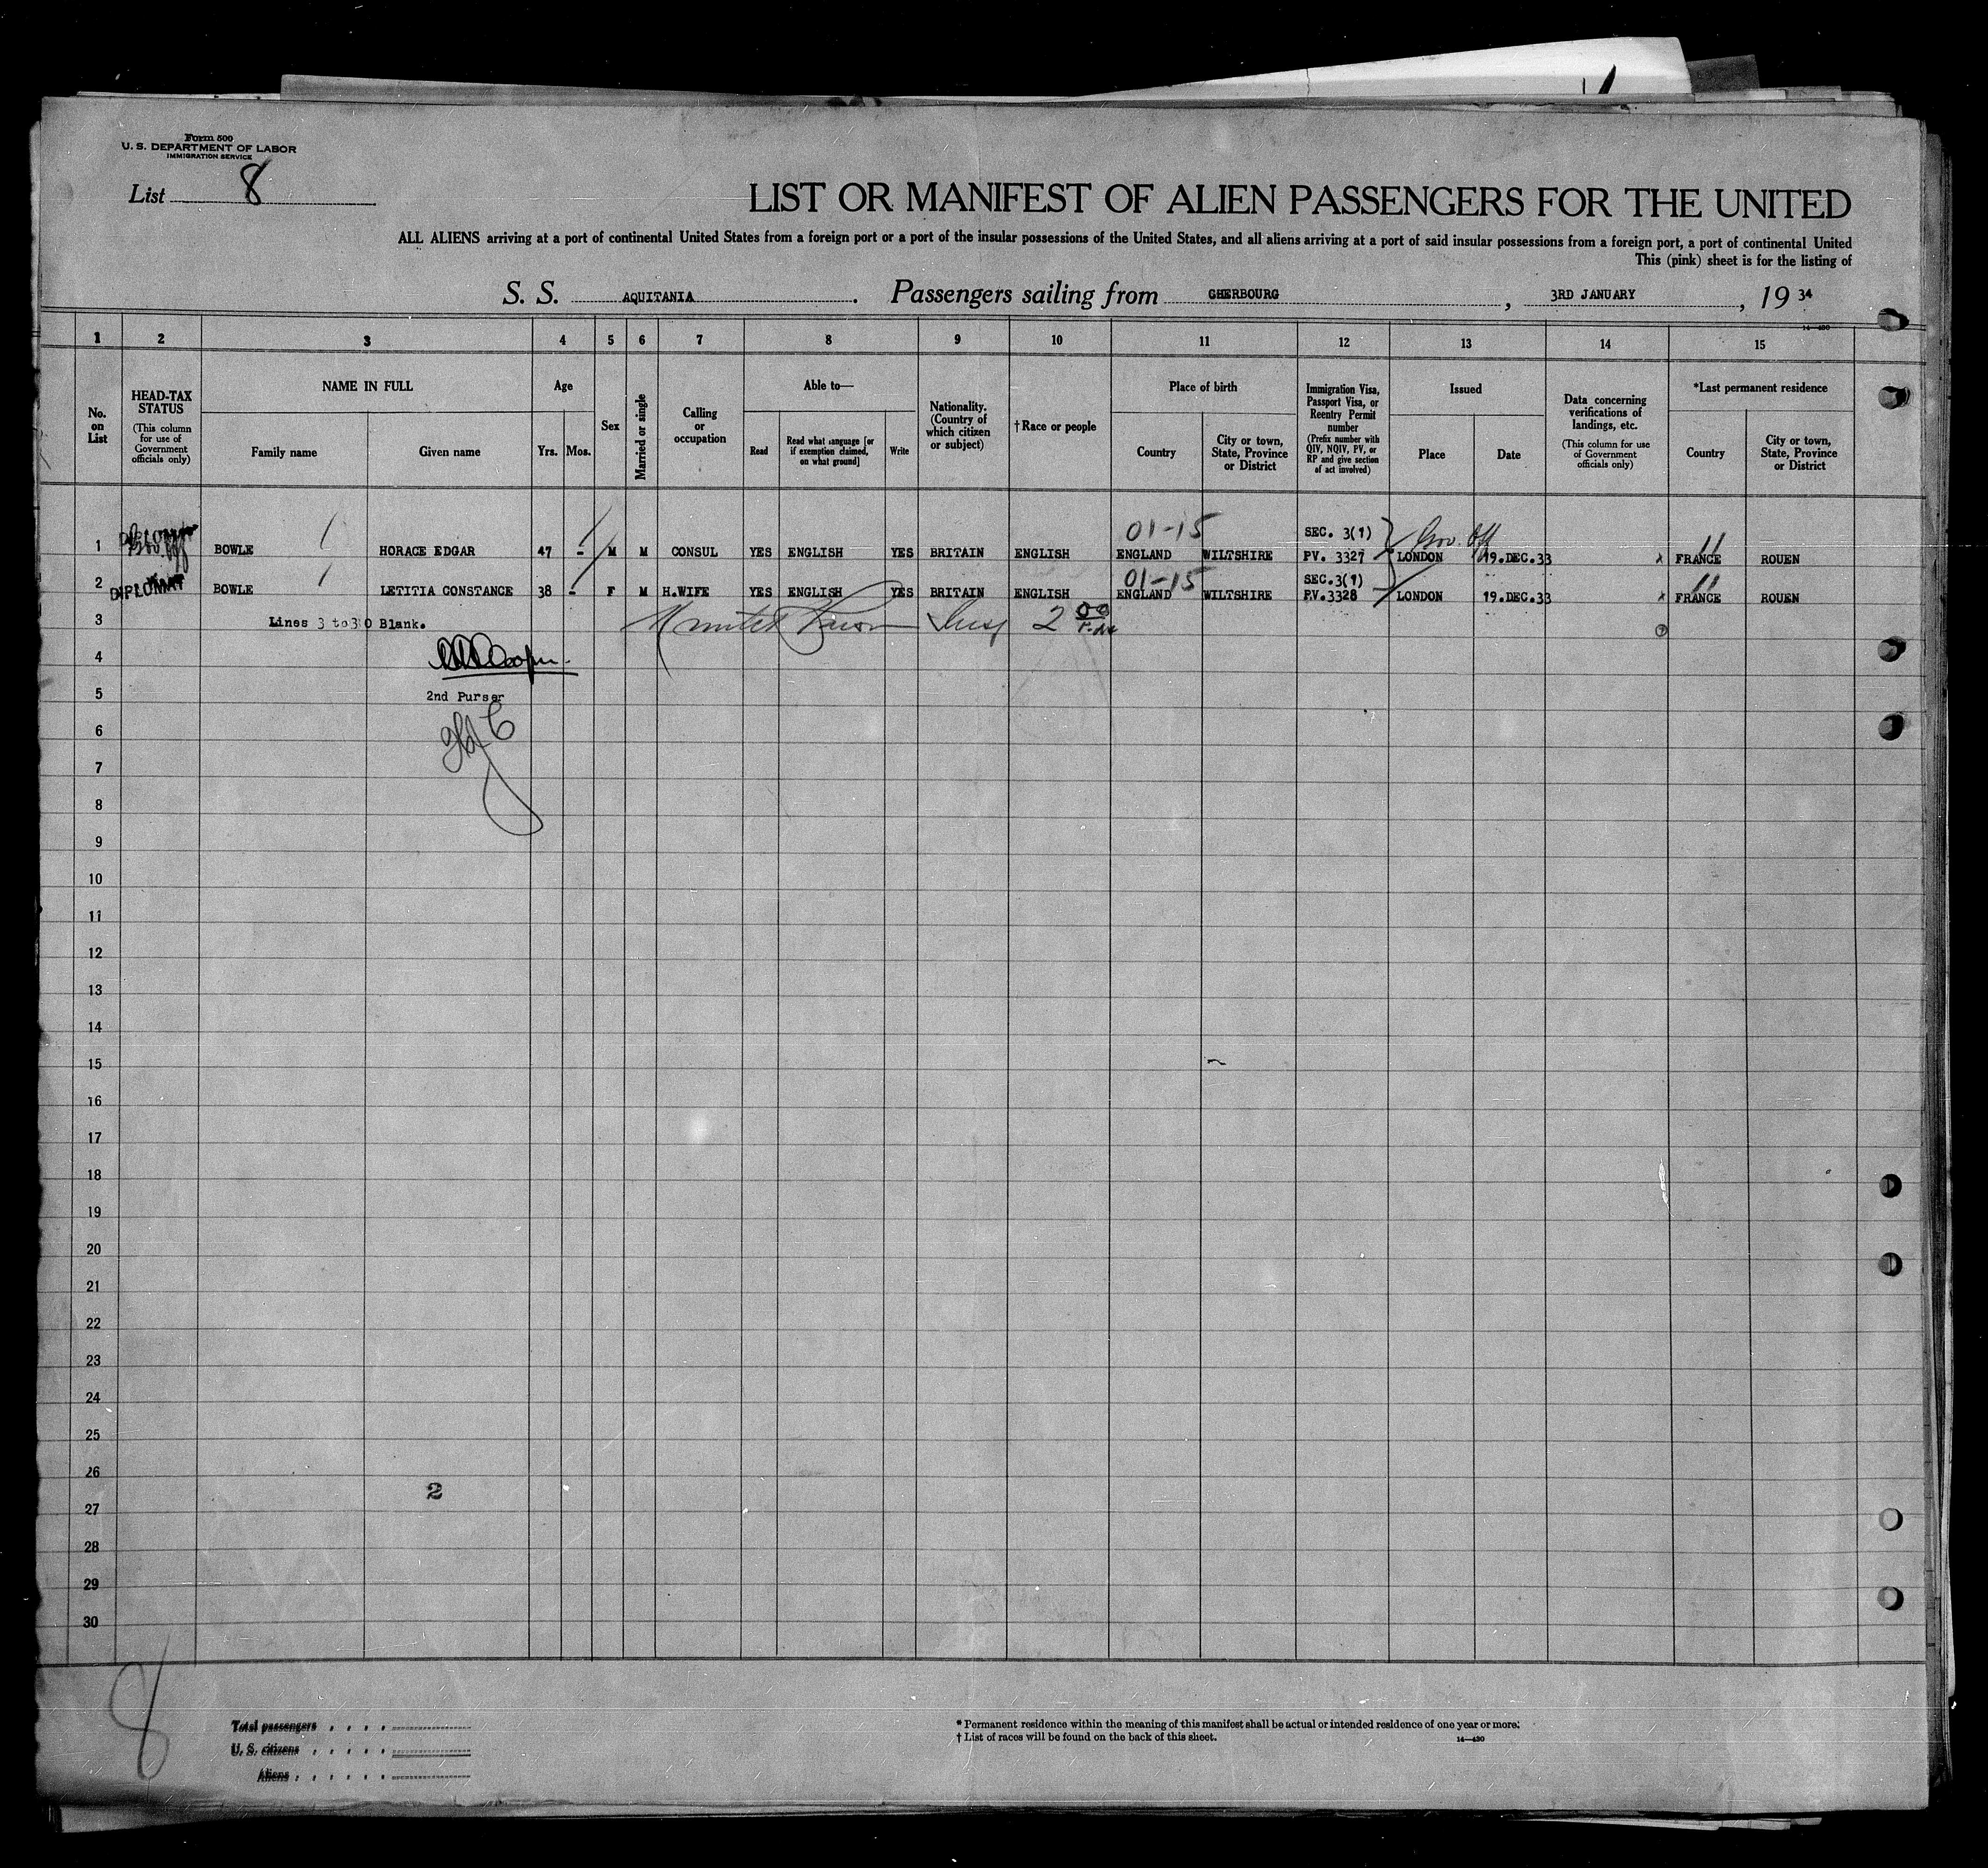 Form 500
U. S. DEPARTMENT OF LABOR
IMMIGRATION SERVICE
List 8
LIST OR MANIFEST OF ALIEN PASSENGERS FOR THE UNITED
ALL ALIENS arriving at a port of continental United States from a foreign port or a port of the insular possessions of the United States, and all aliens arriving at a port of said insular possessions from a foreign port, a port of continental United
This (pink) sheet is for the listing of
S. S. AQUITANIA. Passengers sailing from CHERBOURG, 3RD JANUARY, 19 34
14—430
1 2 3 4 5 6 7 8 9 10 11 12 13 14 15
No. on List
HEAD-TAX STATUS (This column for use of Government officials only)
NAME IN FULL
Family name
Given name
Age
Yrs. Mos.
Sex
Married or single
Calling or occupation
Able to—
Read
Read what language [or if exemption claimed, on what ground]
Write
Nationality. (Country of which citizen or subject)
†Race or people
Place of birth
Country
City or town, State, Province or District
Immigration Visa, Passport Visa, or Reentry Permit number (Prefix number with QIV, NQIV, PV, or RP and give section of act involved)
Issued
Place
Date
Data concerning verifications of landings, etc. (This column for use of Government officials only)
*Last permanent residence
Country
City or town, State, Province or District
01-15 SEC. 3(1) Gov. Off 11
1 BOWLE HORACE EDGAR 47 - M M CONSUL YES ENGLISH YES BRITAIN ENGLISH ENGLAND WILTSHIRE PV. 3327 LONDON 19.DEC.33 x FRANCE ROUEN
01-15 SEC.3(1) 11
2 DIPLOMAT BOWLE LETITIA CONSTANCE 38 - F M H.WIFE YES ENGLISH YES BRITAIN ENGLISH ENGLAND WILTSHIRE P.V.3328 LONDON 19.DEC.33 x FRANCE ROUEN
3 Lines 3 to 30 Blank. 2 00
4
5 2nd Purser
6
7
8
9
10
11
12
13
14
15
16
17
18
19
20
21
22
23
24
25
26
2
27
28
29
30
8
Total passengers
U. S. citizens
Aliens
* Permanent residence within the meaning of this manifest shall be actual or intended residence of one year or more.
† List of races will be found on the back of this sheet.
14—430